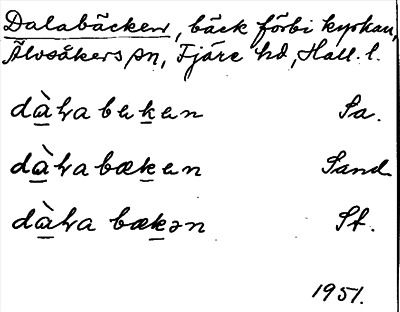 Dalabäcken, bäck förbi kyrkan,
Älvsåkers sn, Fjäre hd, Hall. l.
dàꞎa beken Sa.
dàꞎa bæken Sand
dàꞎa bækən St.
1951.